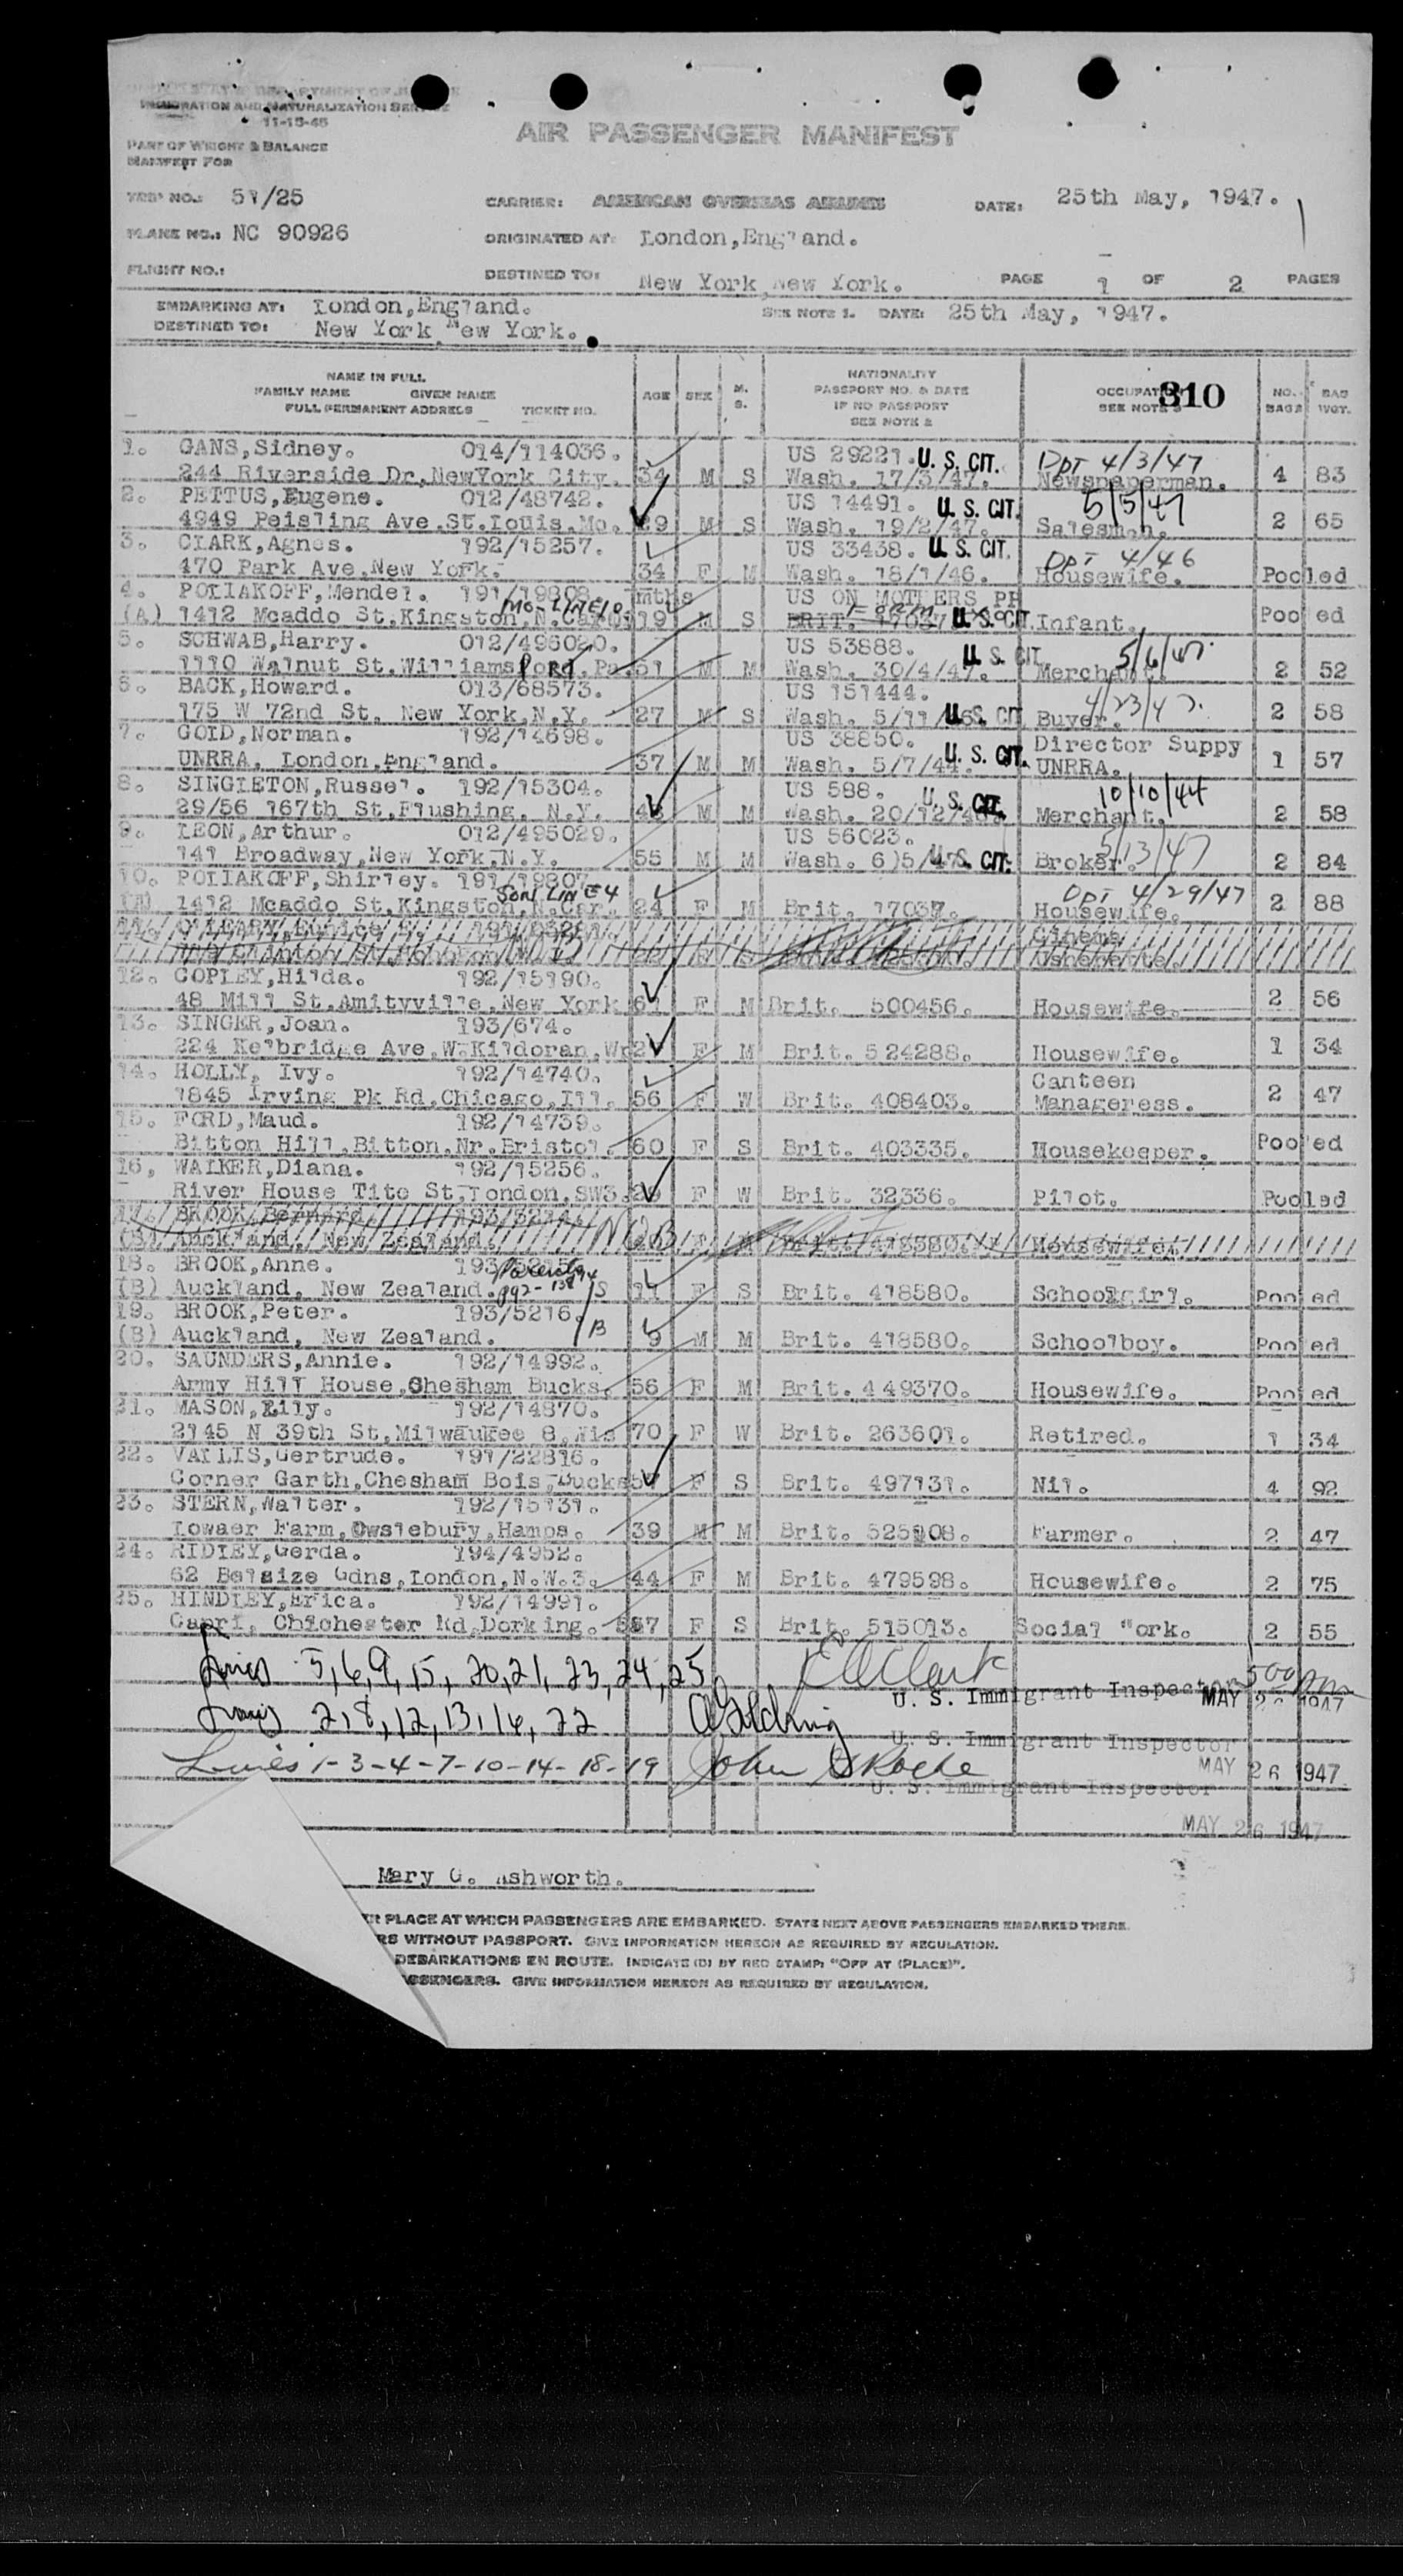 IMMIGRATION AND NATURALIZATION SERVICE
11-15-45
PART OF WEIGHT & BALANCE
MANIFEST FOR
AIR PASSENGER MANIFEST
TRIP NO.: 51/25
CARRIER: AMERICAN OVERSEAS AIRLINES
DATE: 25th May, 1947.
PLANE NO.: NC 90926
ORIGINATED AT: London,England.
FLIGHT NO.:
DESTINED TO: New York,New York.
PAGE 1 OF 2 PAGES
EMBARKING AT: London,England.
SEE NOTE 1. DATE: 25th May, 1947.
DESTINED TO: New York New York.
NAME IN FULL
FAMILY NAME GIVEN NAME
FULL PERMANENT ADDRESS TICKET NO.
AGE SEX M. S.
NATIONALITY
PASSPORT NO. & DATE
IF NO PASSPORT
SEE NOTE 2
OCCUPATION
SEE NOTE 3
310
NO. BAGS BAG WGT.
1. GANS,Sidney. 014/114036. US 29221. U. S. CIT. Dpt 4/3/47
244 Riverside Dr,NewYork City. 34 M S Wash. 17/3/47. Newspaperman. 4 83
2. PETTUS,Eugene. 012/48742. US 14491. U. S. CIT. 5/5/47
4949 Peisling Ave.St.Louis.Mo. 29 M S Wash. 19/2/47. Salesman. 2 65
3. CLARK,Agnes. 192/15257. US 33438. U. S. CIT. Dpt 4/46
470 Park Ave,New York. 34 F M Wash. 18/1/46. Housewife. Pooled
4. POLIAKOFF,Mendel. 191/19808. mths US ON MOTHERS PP
MO-LINE 10
(A) 1412 Mcaddo St,Kingston,N.Car. 19 M S BRIT. 17037 U. S. CIT. Infant. Pooled
5. SCHWAB,Harry. 012/495020. US 53888. U. S. CIT 5/6/47.
1110 Walnut St.Williamsport,Pa. 51 M M Wash. 30/4/47. Merchant. 2 52
6. BACK,Howard. 013/68573. US 151444. 4/23/47.
175 W 72nd St. New York,N.Y. 27 M S Wash. 5/11/46. U. S. CIT Buyer. 2 58
7. GOLD,Norman. 192/14698. US 38850. U. S. CIT. Director Suppy
UNRRA, London,England. 37 M M Wash. 5/7/44. UNRRA. 1 57
8. SINGLETON,Russel. 192/15304. US 588. U. S. CIT. 10/10/44
29/56 167th St,Flushing, N.Y. M M Wash. 20/12/46. Merchant. 2 58
9. LEON,Arthur. 012/495029. US 56023. 5/13/47
141 Broadway,New York,N.Y. 55 M M Wash. 6)5/47. U. S. CIT. Broker. 2 84
10. POLIAKOFF,Shirley. 191/19807. Dpt 4/29/47
SON LINE 4
(A) 1412 Mcaddo St,Kingston,N.Car. 24 F M Brit. 17037. Housewife. 2 88
11. O'LEARY,Eunice Cinema
Usherette.
12. COPLEY,Hilda. 192/15190.
48 Mill St.Amityville,New York 61 F M Brit. 500456. Housewife. 2 56
13. SINGER,Joan. 193/674.
224 Kelbridge Ave,W.Kildoran,Wn F M Brit. 524288. Housewife. 1 34
14. HOLLY, Ivy. 192/14740. Canteen
1845 Irving Pk Rd,Chicago,Ill. 56 F W Brit. 408403. Manageress. 2 47
15. FORD,Maud. 192/14739.
Bitton Hill,Bitton,Nr.Bristol. 60 F S Brit. 403335. Housekeeper. Pooled
16, WALKER,Diana. 192/15256.
River House Tite St,London,SW3. 29 F W Brit. 32336. Pilot. Pooled
17. BROOK,Bernard.
(B) Auckland, New Zealand. NOB Brit. 418580. Housewife.
18. BROOK,Anne. 193/5215.
(B) Auckland, New Zealand. 11 F S Brit. 418580. Schoolgirl. Pooled
19. BROOK,Peter. 193/5216.
(B) Auckland, New Zealand. 9 M M Brit. 418580. Schoolboy. Pooled
20. SAUNDERS,Annie. 192/14992.
Army Hill House,Chesham Bucks. 56 F M Brit. 449370. Housewife. Pooled
21. MASON,Lily. 192/14870.
2145 N 39th St,Milwaukee 8,Wis 70 F W Brit. 263601. Retired. 1 34
22. VALLIS,Gertrude. 191/22816.
Corner Garth,Chesham Bois,Bucks 57 F S Brit. 497131. Nil. 4 92
23. STERN,Walter. 192/15131.
Lowaer Farm,Owslebury,Hamps. 39 M M Brit. 525908. Farmer. 2 47
24. RIDLEY,Gerda. 194/4952.
62 Belsize Gdns,London,N.W.3. 44 F M Brit. 479598. Housewife. 2 75
25. HINDLEY,Erica. 192/14991.
Capri, Chichester Rd,Dorking. 57 F S Brit. 515013. Social Work. 2 55
Lines 5,6,9,15, 20,21, 23,24,25
U. S. Immigrant Inspector 500 pm
MAY 26 1947
Lines 2,8,12,13,16,22 A Golding
U. S. Immigrant Inspector
Lines 1-3-4-7-10-14-18-19 John Roche MAY 26 1947
U. S. Immigrant Inspector
MAY 26 1947
Mary G. Ashworth.
PLACE AT WHICH PASSENGERS ARE EMBARKED. STATE NEXT ABOVE PASSENGERS EMBARKED THERE.
RS WITHOUT PASSPORT. GIVE INFORMATION HEREON AS REQUIRED BY REGULATION.
DEBARKATIONS EN ROUTE. INDICATE (D) BY RED STAMP: "OFF AT (PLACE)".
ASSENGERS. GIVE INFORMATION HEREON AS REQUIRED BY REGULATION.